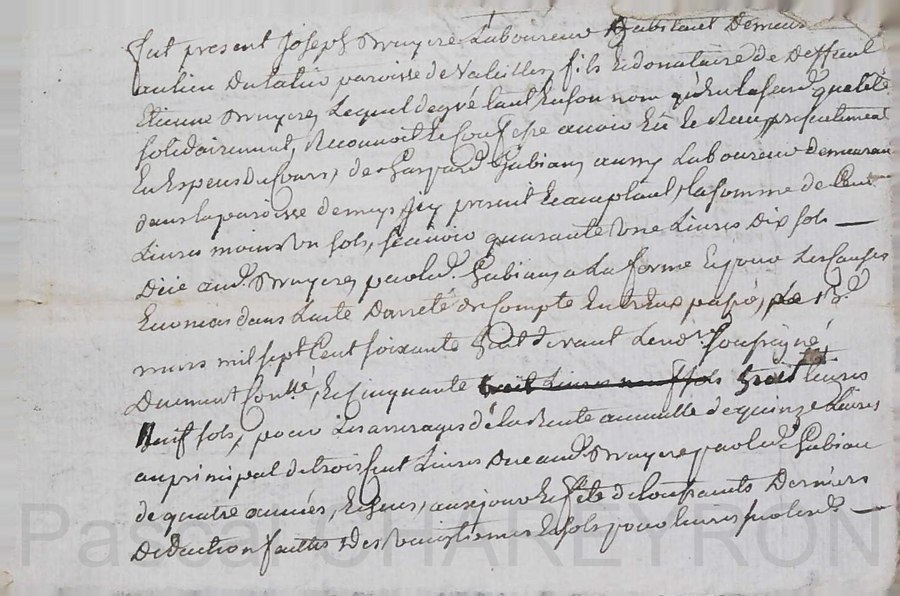 fut present Joseph Bruyere Laboureur Habitant Demeurant
au lieu Du paroisse de Valeilles, fils et donataire de Deffunt
Etienne Bruyere, Lequel de gré tant en son nom qu'en la ditte qualité
solidairement, Reconnoit et Confesse avoir Eû et Receu presentement
En Especes De Cours, de Gaspard Gubian, aussy Laboureur demeurant
dans la paroisse de present et acceptant, la somme de Cent
Livres moins un sols, scavoir quarante une Livres Dix sols —
Düe aud. Bruyere, par led. Gubian, a La forme Et pour Les Causes
Enoncés dans L'acte D'arreté de Compte Entr'eux passé, le 13e
mars mil sept Cent soixante huit devant Le nore. soussigné
Duement Controllé, et Cinquante huit Livres neuf sols huit Livres
Neuf sols, pour Les arrerages de la Rente annuelle de quinze Livres
au principal de trois Cent Livres Due aud. Bruyere par led. Gubian
de quatre années, Echeus, au jour et fête de Toussaints Derniers
Deduction faitte, des vingtiemes et sols pour Livres —
Pascal CHAREYRON